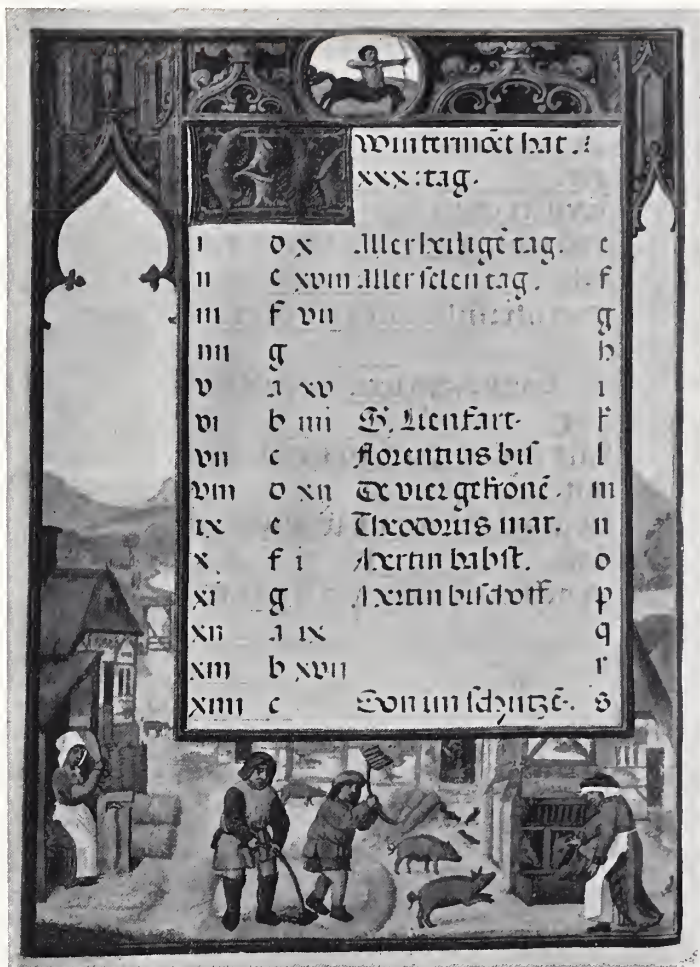 Der Wintermōet hat .
xxx : tag .
i d x Aller heiligē tag . e
ii e xviii Aller selen tag . f
iii f vii g
iiii g h
v a xv i
vi b iiii S. Lienhart . k
vii c florentius bis l
viii d xii De vier gekronē . m
ix e Theodorus mar . n
x f i Mertin babst . o
xi g Mertin bischoff . p
xii a ix q
xiii b xvii r
xiiii c Son im schutzē . s